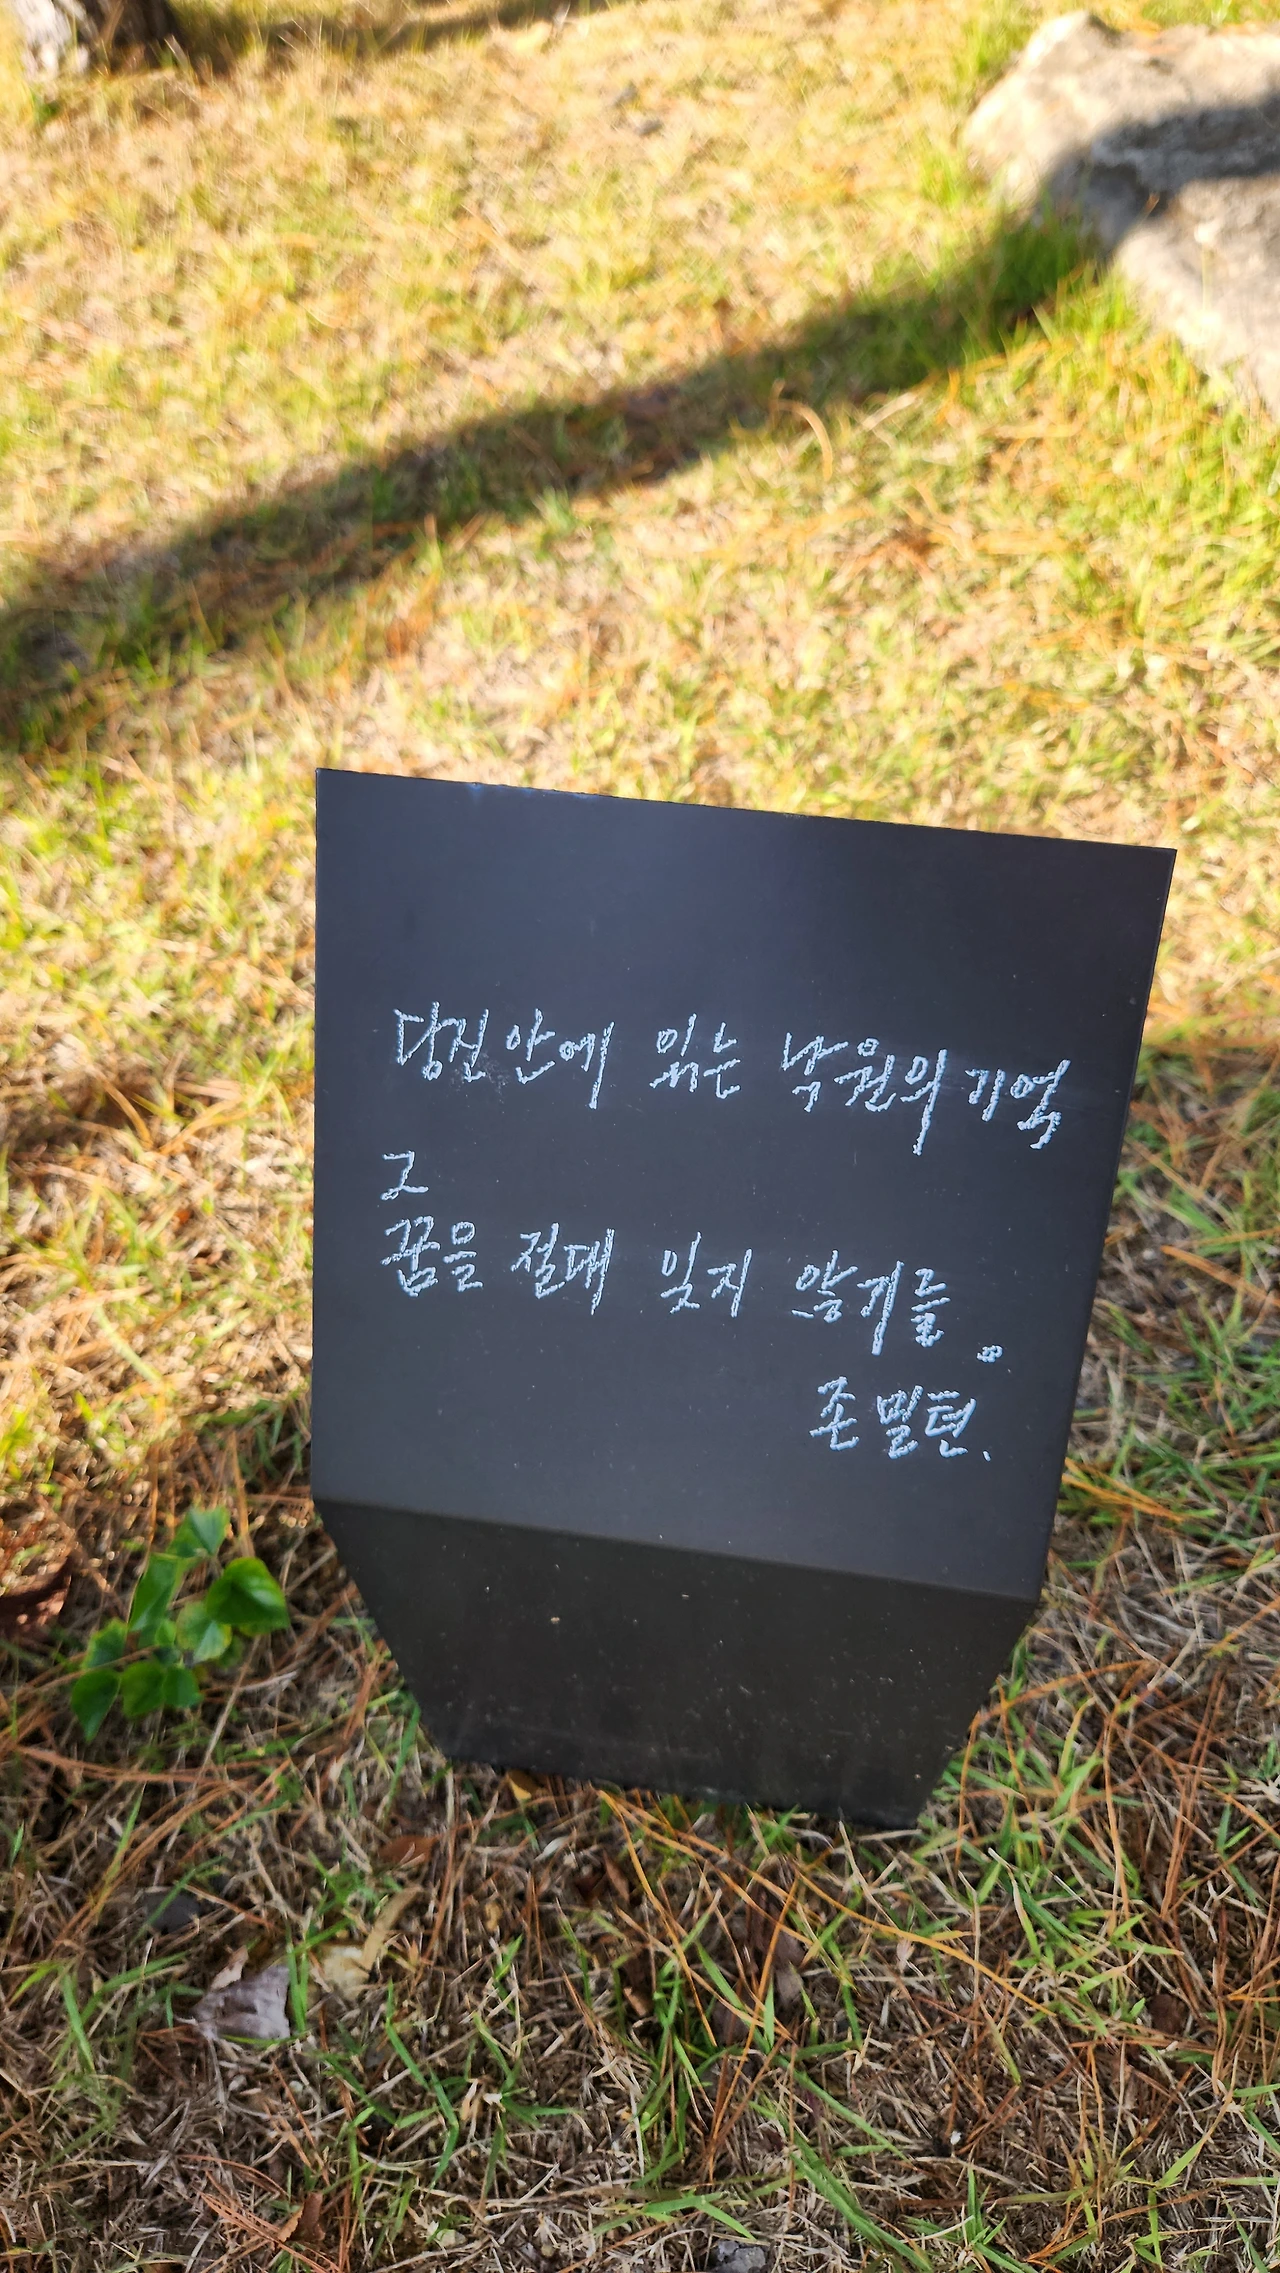 당신 안에 있는 낙원의 기억
그
꿈을 절대 잊지 않기를。
존 밀턴.